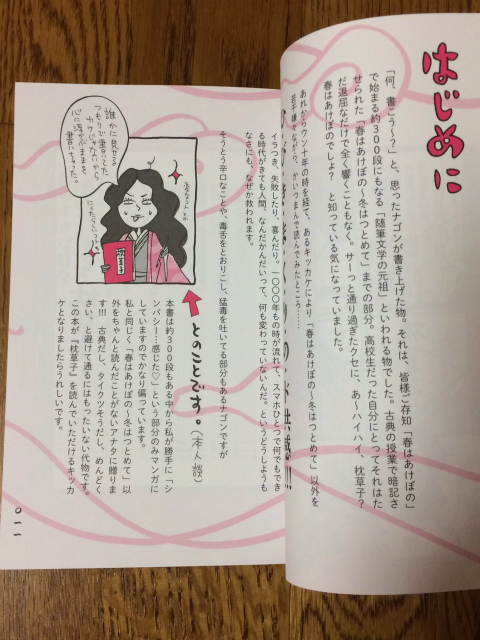 はじめに
「何、書こう〜?」と、思ったナゴンが書き上げた物。それは、皆様ご存知「春はあけぼの」
で始まる約300段にもなる「随筆文学の元祖」といわれる物でした。古典の授業で暗記さ
せられた「春はあけぼの〜冬はつとめて」までの部分。高校生だった自分にとってそれはた
だ退屈なだけで全く響くこともなく。サーっと通り過ぎたクセに、あ〜ハイハイ、枕草子?
春はあけぼのでしょ?　と知っている気になっていました。
あれからウン十年の時を経て、あるキッカケにより「春はあけぼの〜冬はつとめて」以外を
若干嫌々ながら、かいつまんで読んでみたところ……
イラつき、失敗したり、喜んだり。一〇〇〇年もの時が流れて、スマホひとつで何でもでき
る時代がきても人間、なんだかんだいって、何も変わっていないんだ。というどうしようも
なさにも、なぜか救われます。
そうとう辛口なことや、毒舌をとおりこし、猛毒を吐いてる部分もあるナゴンですが
誰かに見せる
つもりで書いてた
わけじゃないから
心に浮かぶままを
書いちゃった。
とのことです。(本人談)
本書は約300段もある中から私が勝手に「シ
ンパシー…感じた♡」という部分のみマンガに
していますのでかなり偏っています。
私と同じく「春はあけぼの〜冬はつとめて」以
外をちゃんと読んだことがないアナタに贈りま
す!!!　古典だし、タイクツそうだし、めんどく
さい、と避けて通るにはもったいない代物です。
この本が『枕草子』を読んでいただけるキッカ
ケとなりましたらうれしいです。
011